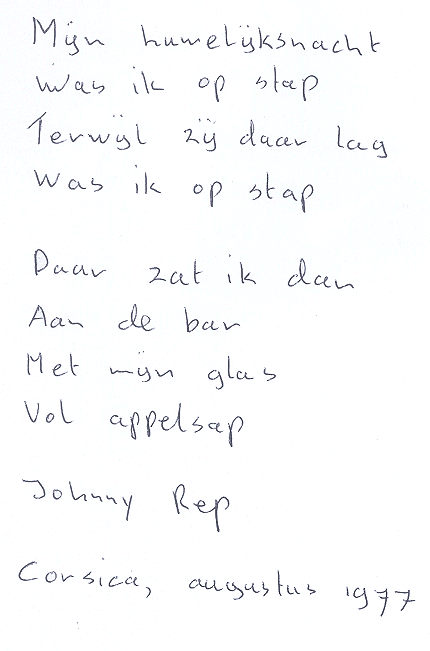 Mijn huwelijksnacht
Was ik op stap
Terwijl zij daar lag
Was ik op stap
Daar zat ik dan
Aan de bar
Met mijn glas
Vol appelsap
Johnny Rep
Corsica, augustus 1977